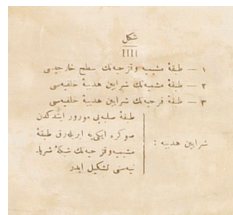 شكل
١ — طبقهٔ مشیمیه وقزحیه‌نك سطح خارجیسی
٢ — طبقهٔ مشیمیه‌نك شرایین هدبیهٔ خلفیه‌سی
٣ — طبقهٔ قزحیه‌نك شرایین هدبیهٔ خلفیه‌سی
شرایین هدبیه :
طبقهٔ صلبه‌یی مورور ایتدكدن
صوكره ایكی‌یه آیریله‌رق طبقهٔ
مشیمیه وقزحیه‌نك شبكهٔ شریا-
نیه‌سنی تشكیل ایدر